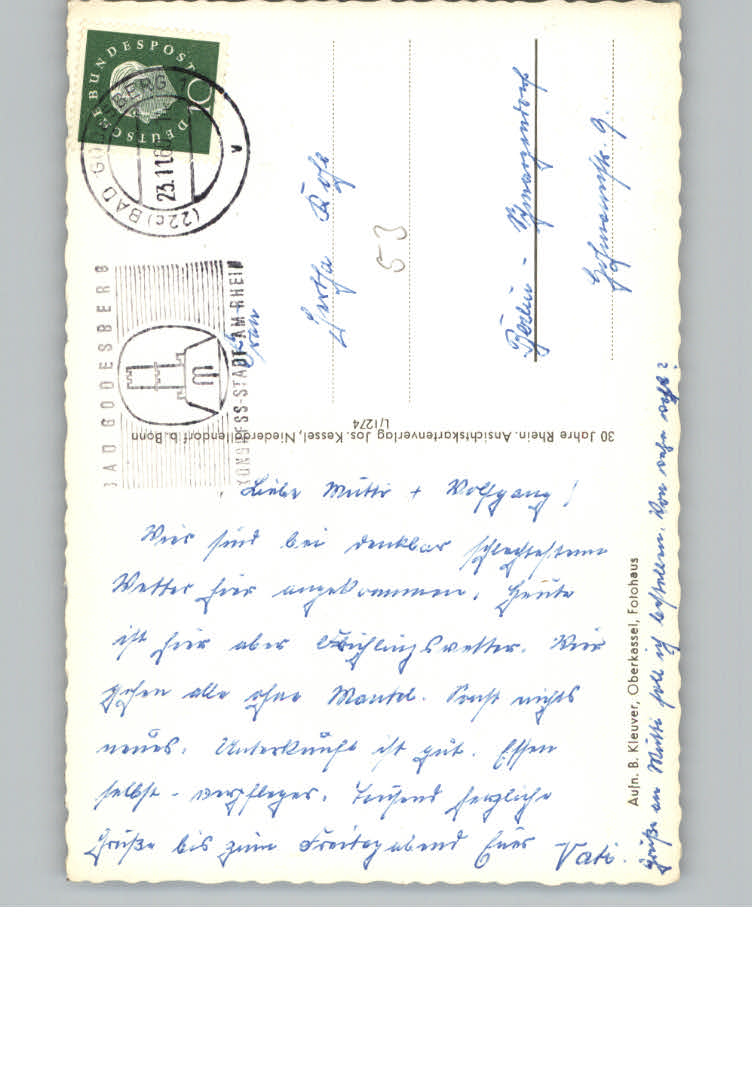 Liebe Mutti + Wolfgang!
Wir sind bei denkbar schlechtestem
Wetter hier angekommen. Heute
ist hier aber Frühlingswetter. Wir
gehen alle ohne Mantel. Sonst nichts
neues. Unterkunft ist gut. Essen
selbst-verpfleger. Tausend herzliche
Grüße bis zum Freitagabend Euer Vati.
Grüße an Mutti soll ich bestellen. Von
Aufn. B. Kleuver, Oberkassel, Fotohaus
30 Jahre Rhein. Ansichtskartenverlag Jos. Kessel, Niederdollendorf b. Bonn
L/1274
DEUTSCHE BUNDESPOST
(22c) BAD GODESBERG 1
23.11.6
BAD GODESBERG
KONGRESS-STADT AM RHEIN
Frau
Hertha
53
Berlin - Schmargendorf
9